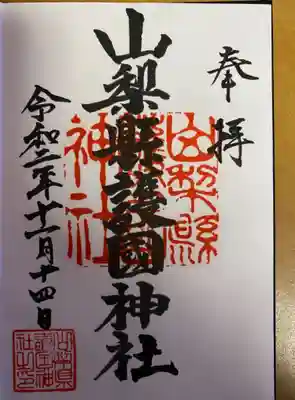 奉拝
山梨縣護國神社
山梨縣
神社
令和二年十一月十四日